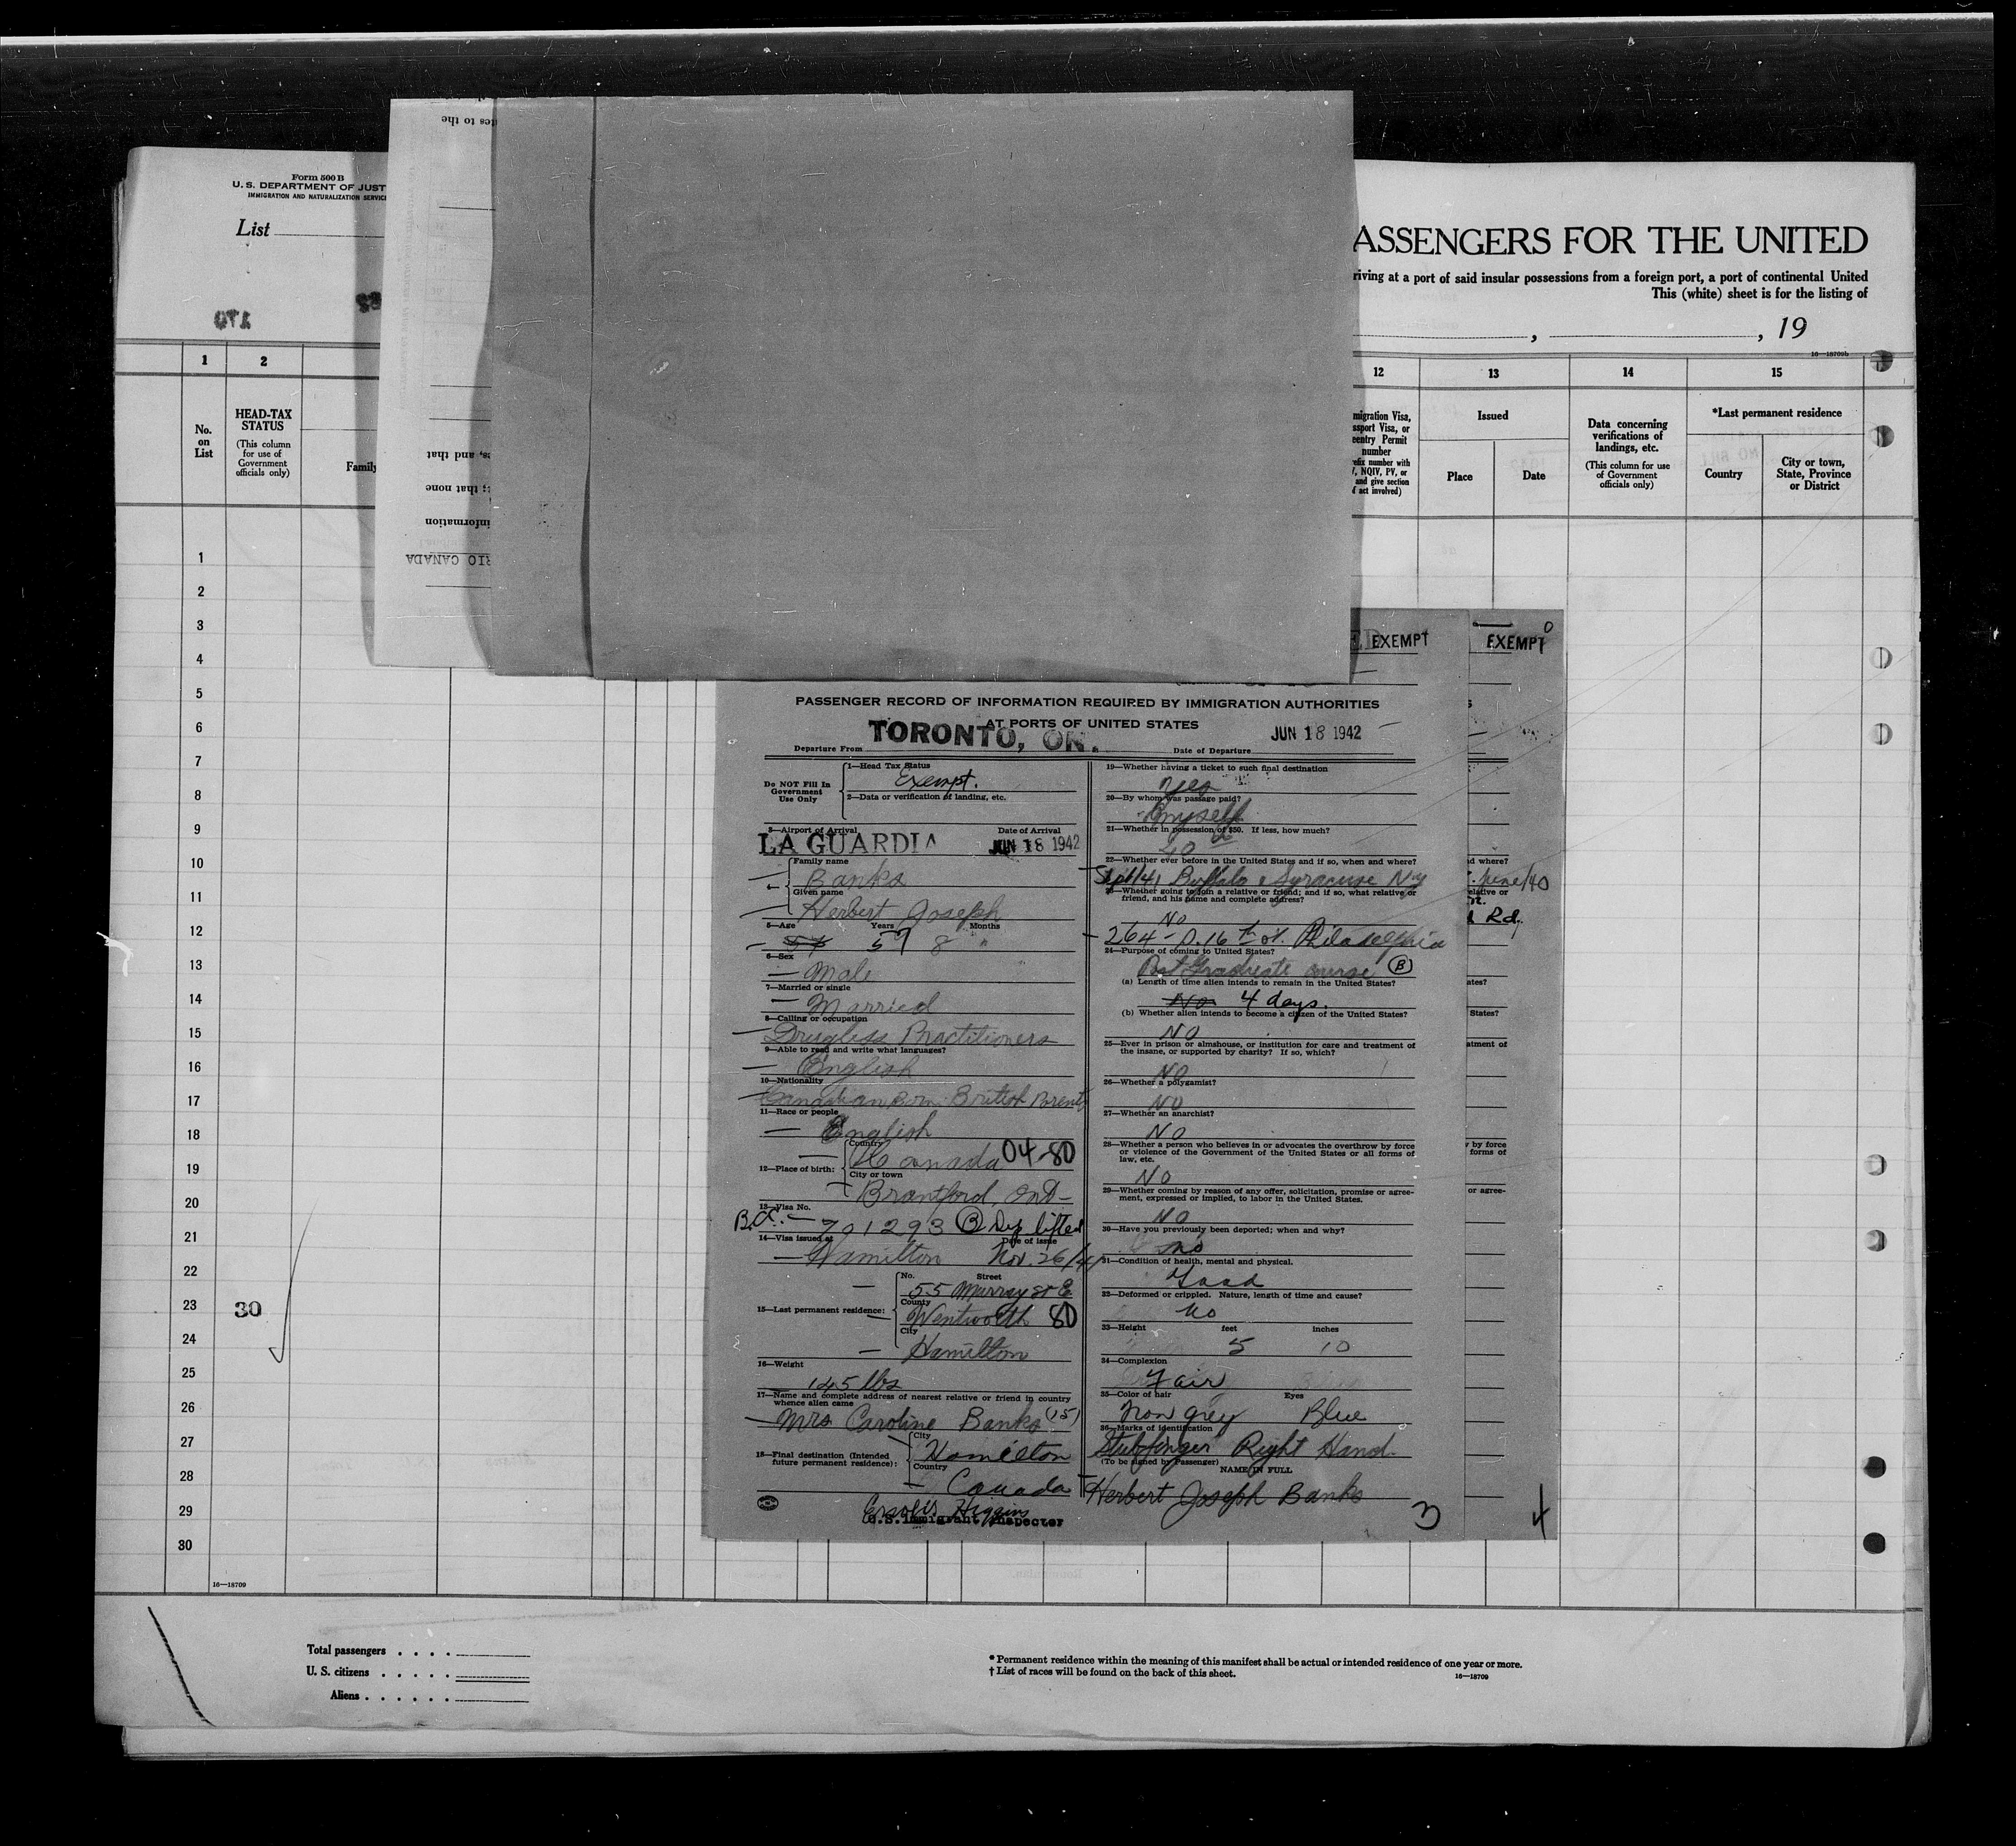 Form 500 B
U. S. DEPARTMENT OF JUST
IMMIGRATION AND NATURALIZATION SERVIC
List
170
ites to the
es, and that
; that none
information
RIO CANADA
ASSENGERS FOR THE UNITED
riving at a port of said insular possessions from a foreign port, a port of continental United
This (white) sheet is for the listing of
, , 19
16—18709b
1 2 12 13 14 15
No. on List
HEAD-TAX STATUS
(This column for use of Government officials only)
Family
migration Visa,
ssport Visa, or
eentry Permit
number
efix number with
, NQIV, PV, or
and give section
f act involved)
Issued
Place
Date
Data concerning verifications of landings, etc.
(This column for use of Government officials only)
*Last permanent residence
Country
City or town, State, Province or District
1
2
3
4
5
6
7
8
9
10
11
12
13
14
15
16
17
18
19
20
21
22
23 30
24
25
26
27
28
29
30
16—18709
EXEMPT
EXEMPT
0
PASSENGER RECORD OF INFORMATION REQUIRED BY IMMIGRATION AUTHORITIES
AT PORTS OF UNITED STATES
Departure From TORONTO, ON. Date of Departure JUN 18 1942
Do NOT Fill In Government Use Only
1—Head Tax Status
Exempt.
2—Data or verification of landing, etc.
3—Airport of Arrival Date of Arrival
LA GUARDIA JUN 18 1942
4—
Family name
Banks
Given name
Herbert Joseph
5—Age Years Months
57 8
6—Sex
Male
7—Married or single
Married
8—Calling or occupation
Drugless Practitioners
9—Able to read and write what languages?
English
10—Nationality
Canadian Born. British Parents
11—Race or people
English
12—Place of birth:
Country
Canada 04-80
City or town
Brantford, Ont-
13—Visa No.
B.C. - 701293 B Dep lifted
14—Visa issued at Date of issue
Hamilton Nov. 26/41
15—Last permanent residence:
No. Street
55 Murray St E
County
Wentworth 80
City
Hamilton
16—Weight
145 lbs
17—Name and complete address of nearest relative or friend in country whence alien came
Mrs Caroline Banks (15)
18—Final destination (Intended future permanent residence):
City
Hamilton
Country
Canada
Higgins
U.S. Immigrant Inspector
19—Whether having a ticket to such final destination
Yes
20—By whom was passage paid?
Myself
21—Whether in possession of $50. If less, how much?
22—Whether ever before in the United States and if so, when and where?
Sept/41 Buffalo & Syracuse N.Y
23—Whether going to join a relative or friend; and if so, what relative or friend, and his name and complete address?
No
264 - S. 16th St. Philadelphia
24—Purpose of coming to United States?
Post Graduate course B
(a) Length of time alien intends to remain in the United States?
No 4 days.
(b) Whether alien intends to become a citizen of the United States?
NO
25—Ever in prison or almshouse, or institution for care and treatment of the insane, or supported by charity? If so, which?
NO
26—Whether a polygamist?
NO
27—Whether an anarchist?
NO
28—Whether a person who believes in or advocates the overthrow by force or violence of the Government of the United States or all forms of law, etc.
NO
29—Whether coming by reason of any offer, solicitation, promise or agreement, expressed or implied, to labor in the United States.
NO
30—Have you previously been deported; when and why?
no
31—Condition of health, mental and physical.
Good
32—Deformed or crippled. Nature, length of time and cause?
no
33—Height feet inches
5 10
34—Complexion
Fair
35—Color of hair Eyes
Iron grey Blue
36—Marks of identification
Stub finger Right Hand.
(To be signed by Passenger)
NAME IN FULL
Herbert Joseph Banks
3
d where?
June/40
elative or
Rd.
ates?
States?
atment of
y by force
forms of
or agree-
4
Total passengers . . . .
U. S. citizens . . . . .
Aliens . . . . . .
* Permanent residence within the meaning of this manifest shall be actual or intended residence of one year or more.
† List of races will be found on the back of this sheet.
16—18709